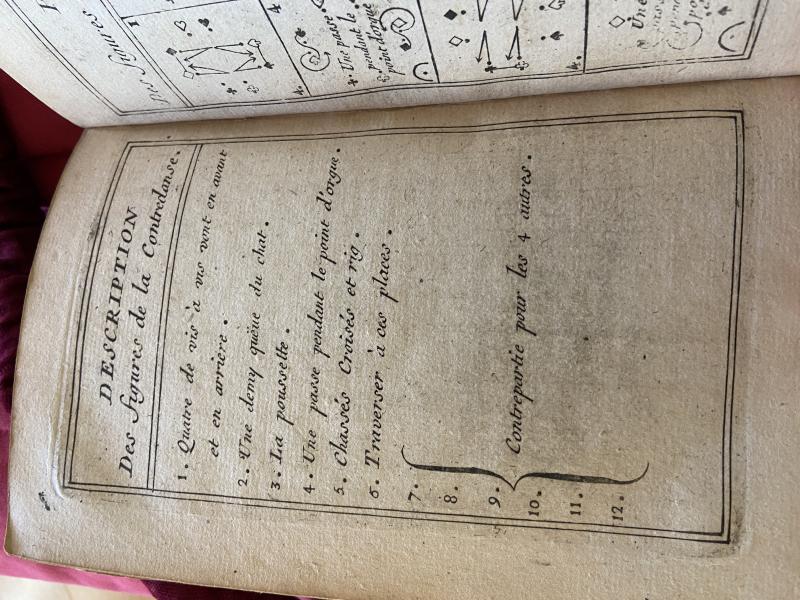 DESCRIPTION
Des figures de la Contredanse.
1. Quatre de vis à vis vont en avant
et en arrière.
2. Une demy queüe du chat.
3. La poussette.
4. Une passe pendant le point d'orgue.
5. Chassés Croisés et rig.
6. Traverser à ces places.
7.
8.
9. Contrepartie pour les 4 autres.
10.
11.
12.
Des Figures
1
4.
4. Une passe
pendant le
point d'orgue
4.
Une